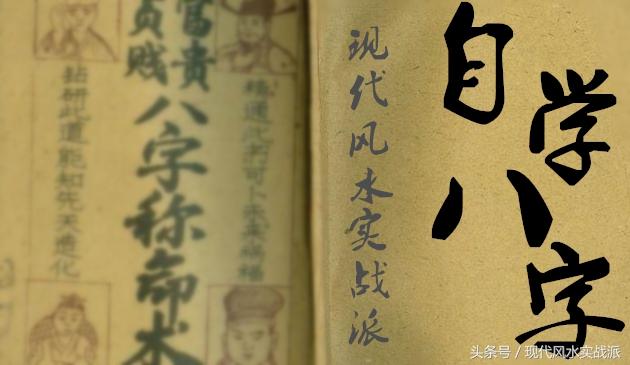 自学八字
现代风水实战派
精通此术可卜未来祸福
富貴
貧贱
八字称命术
钻研此道能知先天造化
头条号／现代风水实战派